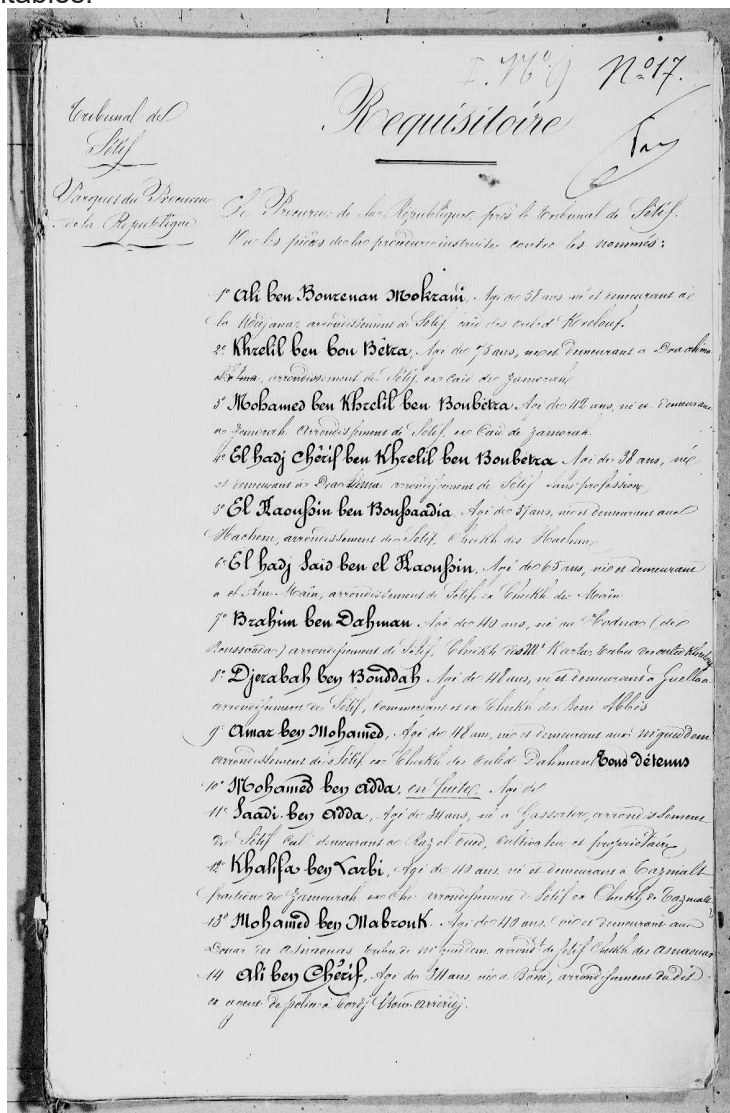 itables.
N.º 17.
Requisitoire
Tribunal de
Sétif
Parquet du Procureur
de la République
Le Procureur de la République, près le tribunal de Sétif.
Vu les pièces de la procédure instruite contre les nommés:
1º Ali ben Bourenan Mokrani, Agé de 58 ans né et demeurant à
la Medjana arrondissement de Sétif, caïd des
2º Khrelil ben bou Bétra, Agé de 75 ans, né et demeurant a
arrondissement de Sétif, ex Caïd de Zamorah
3º Mohamed ben Khrelil ben Boubetra Agé de 42 ans, né et demeurant
a Zamorah Arrondissement de Sétif, ex Caïd de Zamorah.
4º El hadj Chérif ben Khrelil ben Boubetra Agé de 38 ans, né
et demeurant à arrondissement de Sétif sans profession
5º El Haoussin ben Boussaadia Agé de 57 ans, né et demeurant aux
Hachem, arrondissement de Sétif, Cheikh des Hachem
6º El hadj Saïd ben el Haoussin, Agé de 65 ans, né et demeurant
a el Aïn Maïn, arrondissement de Sétif, ex Cheikh des Maïn
7º Brahim ben Dahman Agé de 40 ans, né au Hodna (de
Boussaada) arrondissement de Sétif, Cheikh des
8º Djerabah ben Bouddah Agé de 48 ans, né et demeurant à Guellaa
arrondissement de Sétif, Commerçant et ex Cheikh des Beni Abbès
9º Amar ben Mohamed, Agé de 48 ans, né et demeurant aux
arrondissement de Sétif ex Cheikh des Ouled Dahman Tous détenus
10º Mohamed ben Adda, en fuite, Agé de
11º Saadi ben Adda, Agé de 34 ans, né à arrondissement
de Sétif demeurant à Raz el oued, cultivateur et propriétaire
12º Khalifa ben Larbi, Agé de 40 ans né et demeurant à Tazmalt
fraction de Zamourah arrondissement de Sétif ex Cheikh de Tazmalt
13º Mohamed ben Mabrouk Agé de 40 ans, né et demeurant aux
Douar des Asnaouas tribu de arrondt de Sétif Cheikh des Asnaouas
14 Ali ben Chérif, Agé de 34 ans né à Bone, arrondissement du dit
ex agent de police à Bordj